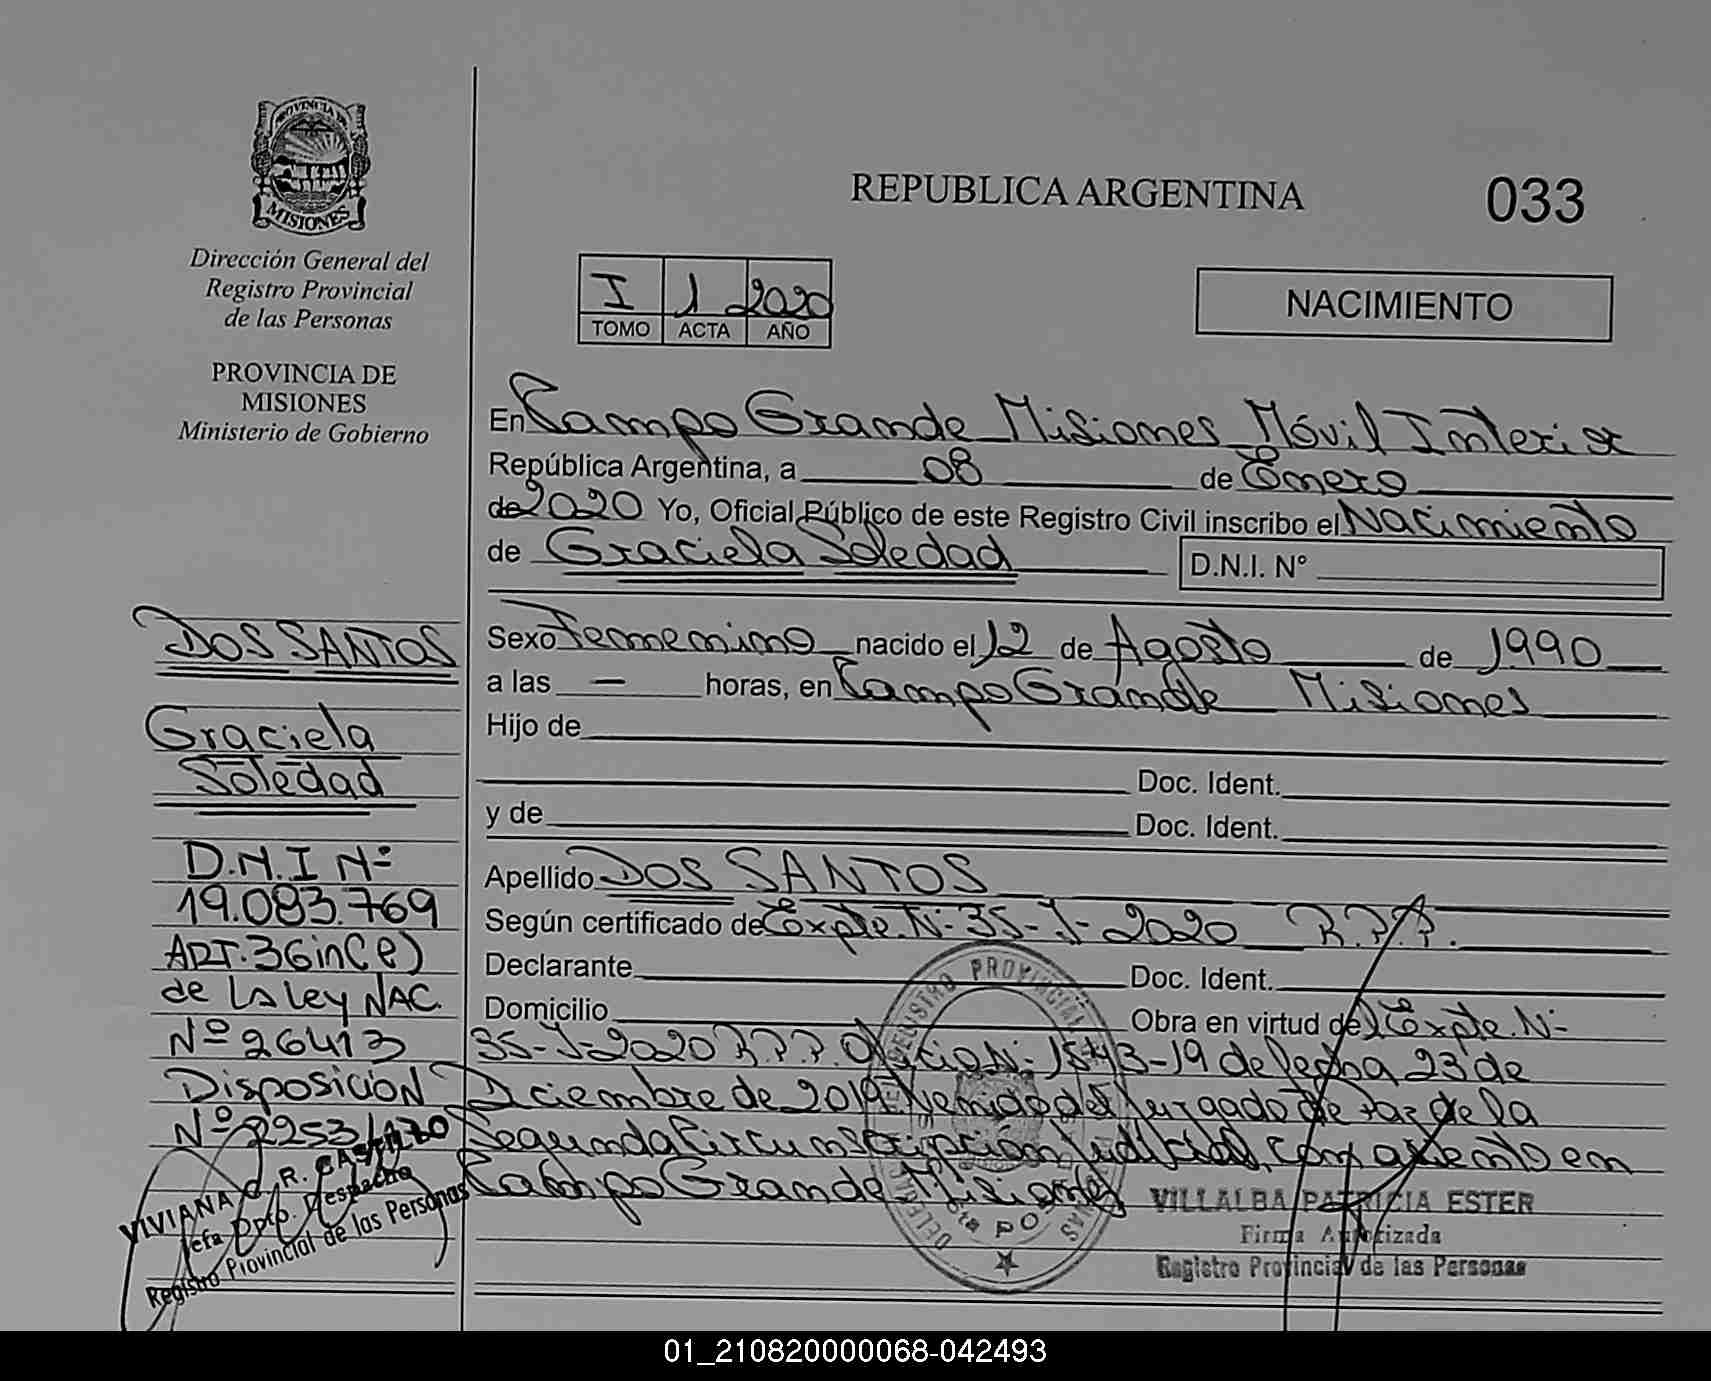 PROVINCIA DE
MISIONES
Dirección General del
Registro Provincial
de las Personas
PROVINCIA DE
MISIONES
Ministerio de Gobierno
REPUBLICA ARGENTINA
033
I 1 2020
TOMO ACTA AÑO
NACIMIENTO
En Campo Grande Misiones Móvil Interior
República Argentina, a 08 de Enero
de 2020 Yo, Oficial Público de este Registro Civil inscribo el Nacimiento
de Graciela Soledad D.N.I. N°
Sexo Femenino nacido el 12 de Agosto de 1990
a las — horas, en Campo Grande Misiones
Hijo de
Doc. Ident.
y de Doc. Ident.
Apellido DOS SANTOS
Según certificado de Expte. N- 35-J-2020 R.P.P.
Declarante Doc. Ident.
Domicilio Obra en virtud del Expte. N-
35-J-2020 R.P.P. Oficio N- 1543-19 de fecha 23 de
Diciembre de 2019 Venido del Juzgado de Paz de la
Segunda Circunscripción Judicial, con asiento en
Campo Grande Misiones
DOS SANTOS
Graciela
Soledad
D.N.I Nº
19.083.769
ART. 36 inc e)
de La Ley NAC.
Nº 26413
Disposición
Nº 2253/
VIVIANA R. CASTILLO
Jefa Dpto. Despacho
Registro Provincial de las Personas
REGISTRO PROVINCIAL
VILLALBA PATRICIA ESTER
Firma Autorizada
Registro Provincial de las Personas
01_210820000068-042493